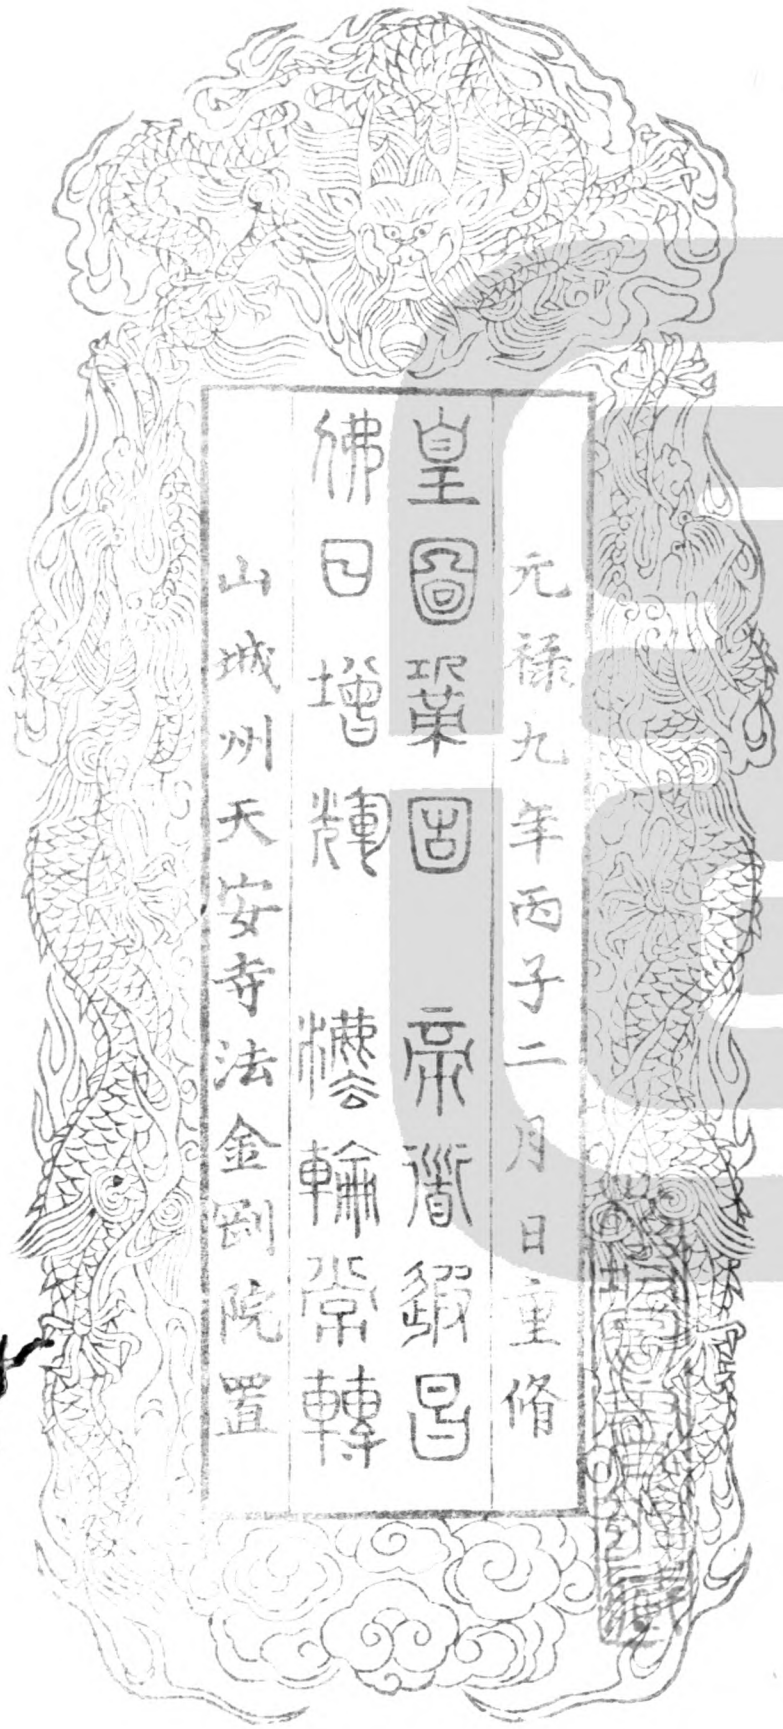 元禄九年丙子二月日重脩
皇圖鞏固 帝衜遐昌
佛日增輝 灋輪常轉
山城州天安寺法金剛院置